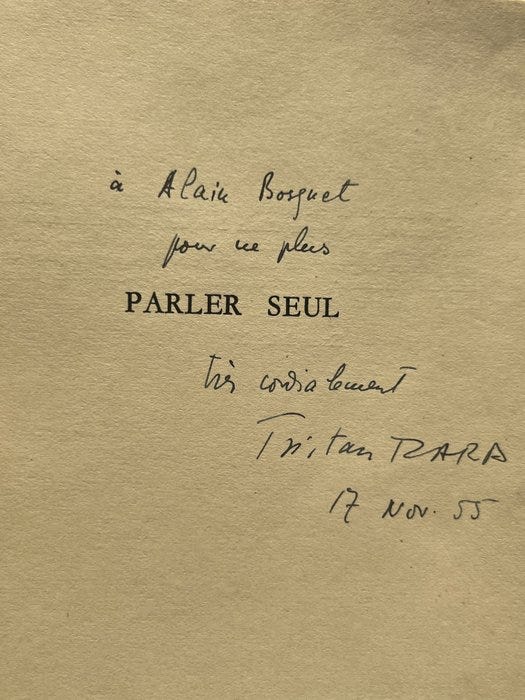 à Alain Bosquet
pour ne plus
PARLER SEUL
très cordialement
Tristan TZARA
17 Nov. 55